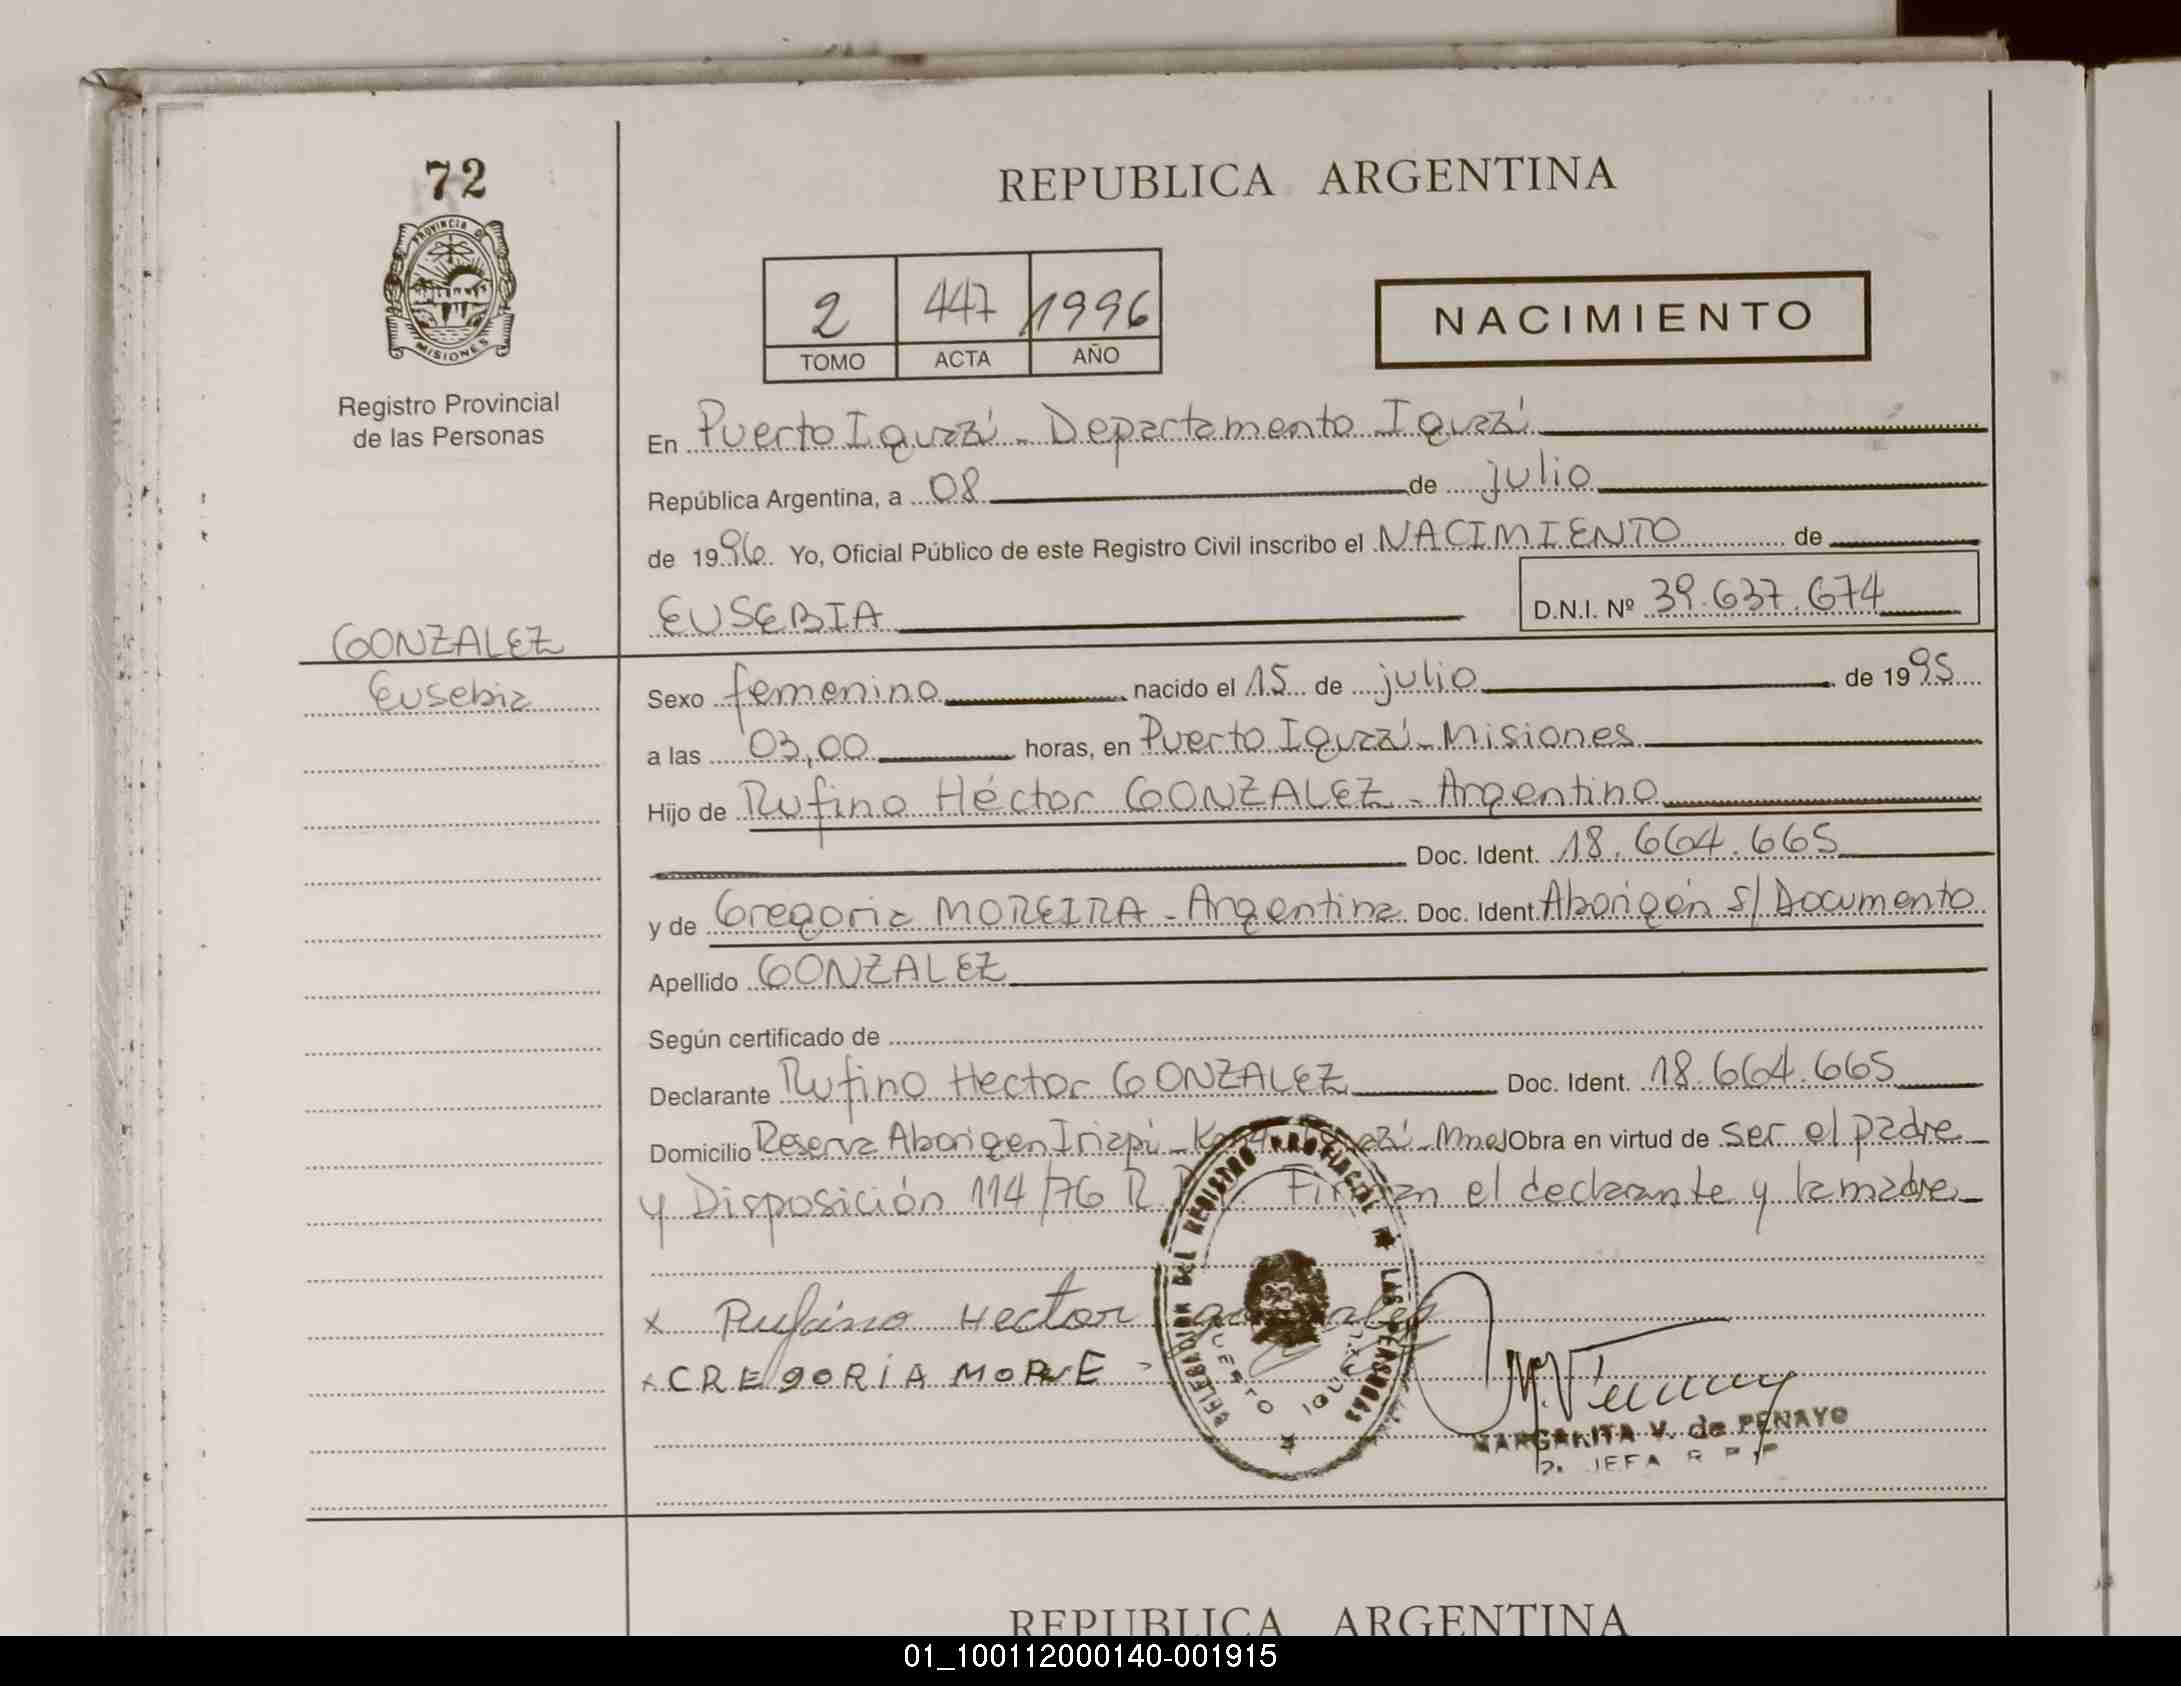 72
PROVINCIA DE
MISIONES
Registro Provincial
de las Personas
GONZALEZ
Eusebia
REPUBLICA ARGENTINA
2 447 1996
TOMO ACTA AÑO
NACIMIENTO
En Puerto Iguazú - Departamento Iguazú
República Argentina, a 08 de julio
de 1996 Yo, Oficial Público de este Registro Civil inscribo el NACIMIENTO de
EUSEBIA D.N.I. Nº 39.637.674
Sexo femenino nacido el 15 de julio de 1995
a las 03,00 horas, en Puerto Iguazú - Misiones
Hijo de Rufino Héctor GONZALEZ - Argentino
Doc. Ident. 18.664.665
y de Gregoria MOREIRA - Argentina Doc. Ident. Aborigen S/ Documento
Apellido GONZALEZ
Según certificado de
Declarante Rufino Hector GONZALEZ Doc. Ident. 18.664.665
Domicilio Reserva Aborigen Iriapú - Obra en virtud de ser el padre
y Disposición 114/76 R. Firman el declarante y la madre
x Rufino Hector
x CREgORIA MORE
DELEGACION DEL REGISTRO PROVINCIAL LAS PERSONAS
PUERTO IGUAZU
MARGARITA V. de PENAYO
JEFA R P P
REPUBLICA ARGENTINA
01_100112000140-001915